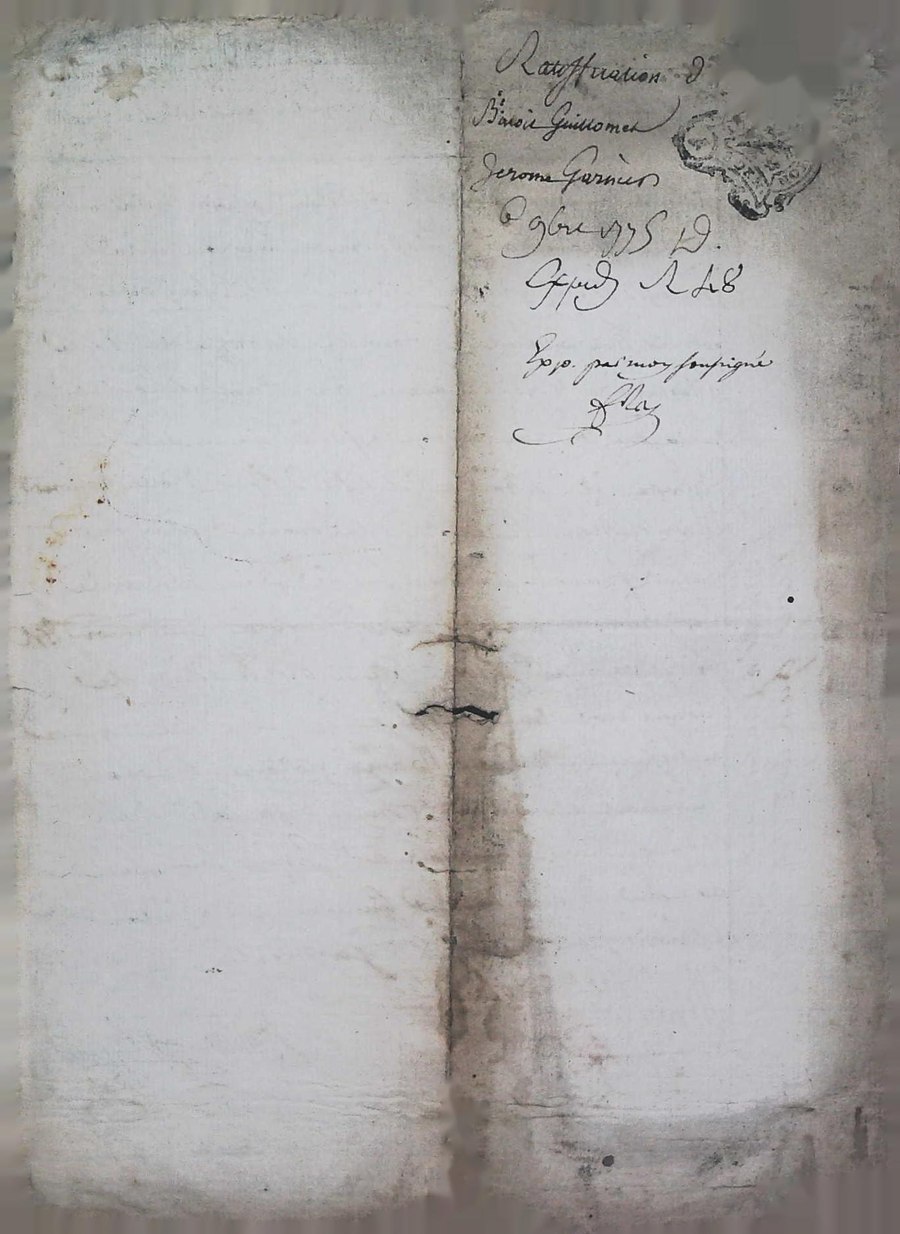 Ratiffication d
Benoit Guillomet
Jerome Garnier
6 9bre 1775
Exppd R
Exp. par moy soussigné